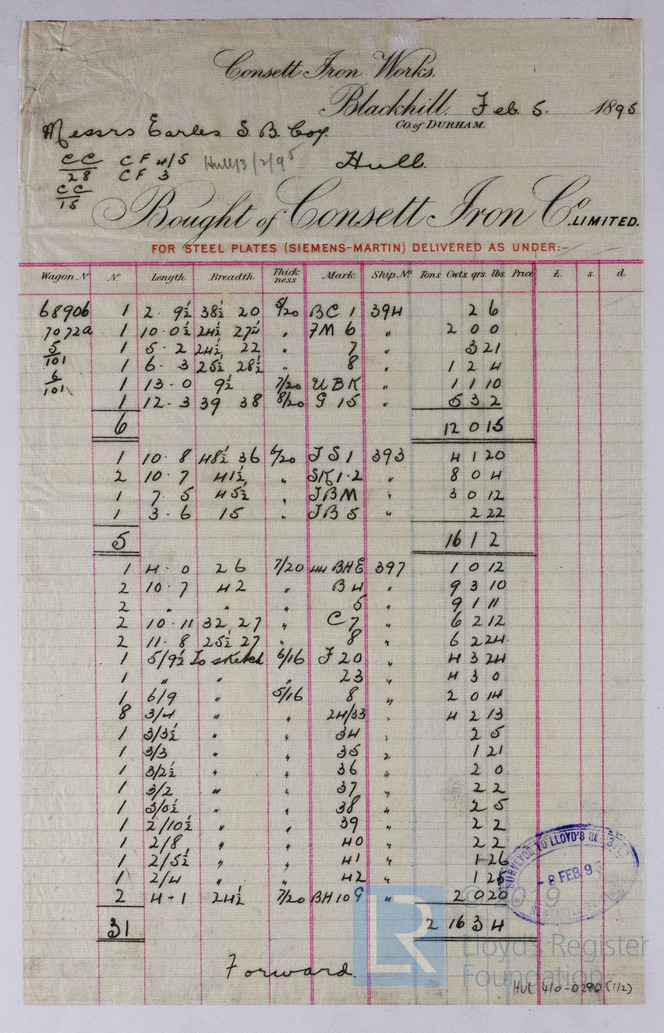 Consett Iron Works,
Blackhill, Feb. 5. 1895
Co. of DURHAM.
Messrs Earles S. B. Coy.
CC/28 CF 4/5 Hull 13/2/95 Hull.
CF 3
CC/15
Bought of Consett Iron Co. LIMITED.
FOR STEEL PLATES (SIEMENS-MARTIN) DELIVERED AS UNDER:—
Wagon No. No. Length Breadth Thickness Mark Ship No. Tons Cwts. qrs. lbs. Price £. s. d.
68906 1 2 · 9½ 38½ 20 8/20 BC 1 394 2 6
7072a 1 10 · 0½ 24½ 27½ " FM 6 " 2 0 0
5/101 1 5 · 2 24½ 22 " 7 " 3 21
1 6 · 3 25½ 28½ " 8 " 1 2 4
6/101 1 13 · 0 9½ 7/20 UBK " 1 1 10
1 12 · 3 39 38 8/20 G 15 " 5 3 2
6 12 0 15
1 10 · 8 48½ 36 6/20 JS 1 393 4 1 20
2 10 · 7 41½ " SK 1·2 " 8 0 4
1 7 · 5 45½ " JBM " 3 0 12
1 3 · 6 15 " JB 5 " 2 22
5 16 1 2
1 4 · 0 26 7/20 BHE 397 1 0 12
2 10 · 7 42 " B 4 " 9 3 10
2 " " " 5 " 9 1 11
2 10 · 11 32 27 " C 7 " 6 2 12
2 11 · 8 25½ 27 " 8 " 6 2 24
1 5/9½ To sketch 6/16 F 20 " 4 3 24
1 " " " 23 " 4 3 0
1 6/9 " 5/16 8 " 2 0 14
8 3/4 " " 24/33 " 4 2 13
1 3/3½ " " 34 " 2 5
1 3/3 " " 35 " 1 21
1 3/2½ " " 36 " 2 0
1 3/2 " " 37 " 2 2
1 3/0½ " " 38 " 2 5
1 2/10½ " " 39 " 2 2
1 2/8 " " 40 " 2 2
1 2/5½ " " 41 " 1 26
1 2/4 " " 42 " 1 25
2 4 - 1 24½ 7/20 BH 10 9 " 2 0 20
31 2 16 3 4
SURVEYOR TO LLOYD'S REGISTER
- 8 FEB. 9
© 2019
LR Lloyd's Register
Foundation
Forward.
HUL 410-0290 (1/2)